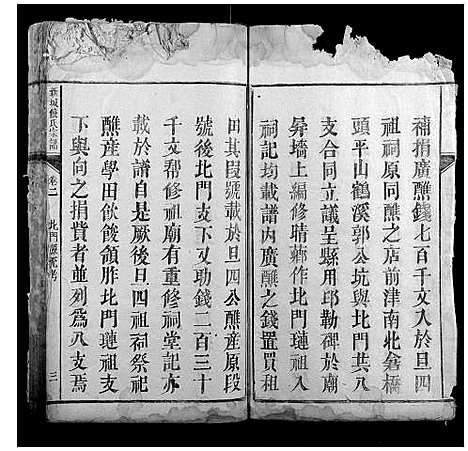 補捐廣醮錢七百千文入於旦四
祖祠原同醮之店前津南北畬橋
頭平山鶴溪郭公坑與北門璉祖
支合同立議呈縣用邱勒碑於廟
昇墻上編修晴薌作北門璉祖入
祠記均載譜內廣醮之錢置買租
田其叚號載於旦四公醮產原叚
號後北門支下又助錢二百三十
千文幫修祖廟有重修祠堂記亦
載於譜自是厥後旦四祖祠祭祀
醮產學田飲餕領胙北門璉祖支
下與向之捐貲者並列爲八支焉
新城饒氏宗譜
卷二
北門源流考
三